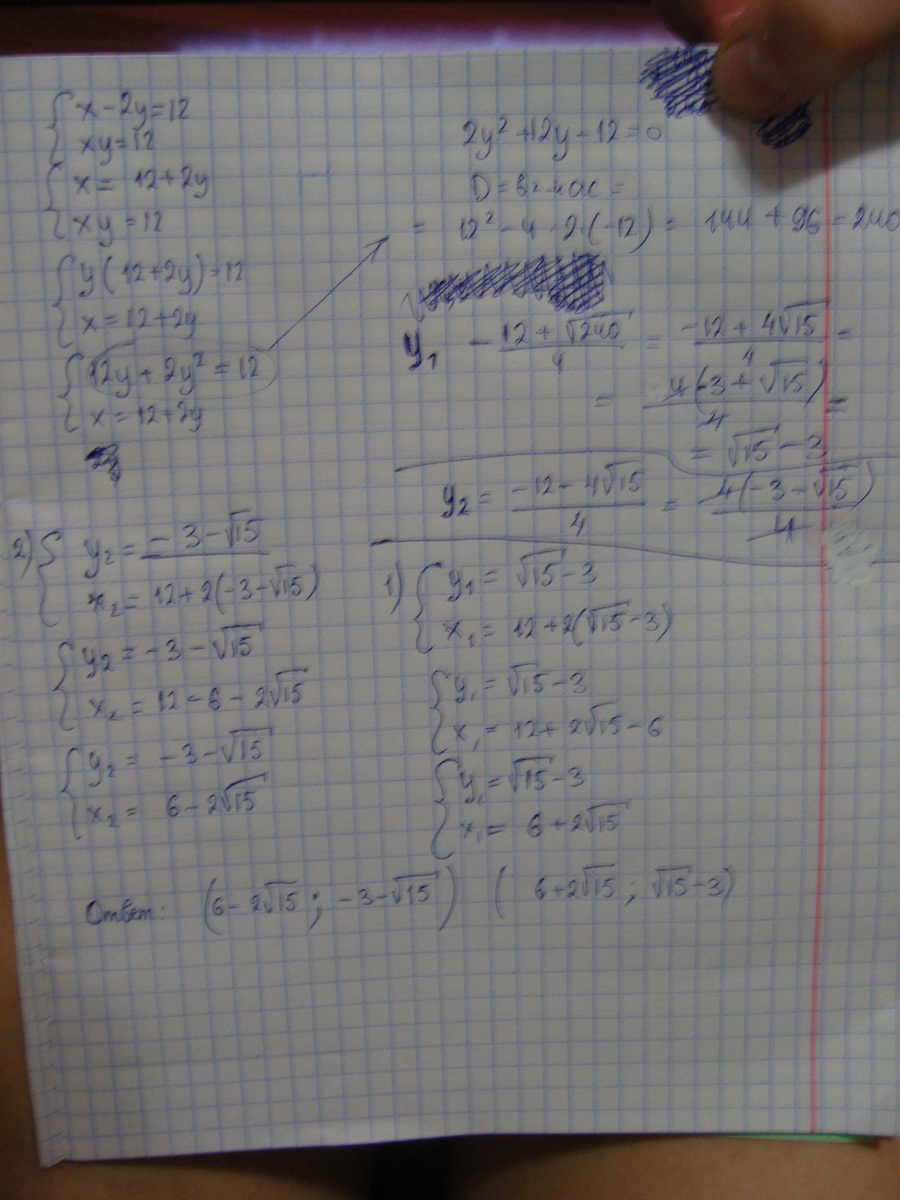 x - 2y = 12
xy = 12
x = 12 + 2y
xy = 12
y(12 + 2y) = 12
x = 12 + 2y
12y + 2y² = 12
x = 12 + 2y
2y² + 12y - 12 = 0
D = в² - 4ac =
= 12² - 4 · 2 · (-12) = 144 + 96 = 240
y₁ = -12 + √240 / 4 = -12 + 4√15 / 4 =
= 4(-3 + √15) / 4 =
= √15 - 3
y₂ = -12 - 4√15 / 4 = 4(-3 - √15) / 4
2) y₂ = -3 - √15
x₂ = 12 + 2(-3 - √15)
y₂ = -3 - √15
x₂ = 12 - 6 - 2√15
y₂ = -3 - √15
x₂ = 6 - 2√15
1) y₁ = √15 - 3
x₁ = 12 + 2(√15 - 3)
y₁ = √15 - 3
x₁ = 12 + 2√15 - 6
y₁ = √15 - 3
x₁ = 6 + 2√15
Ответ: (6 - 2√15 ; -3 - √15) (6 + 2√15 ; √15 - 3)